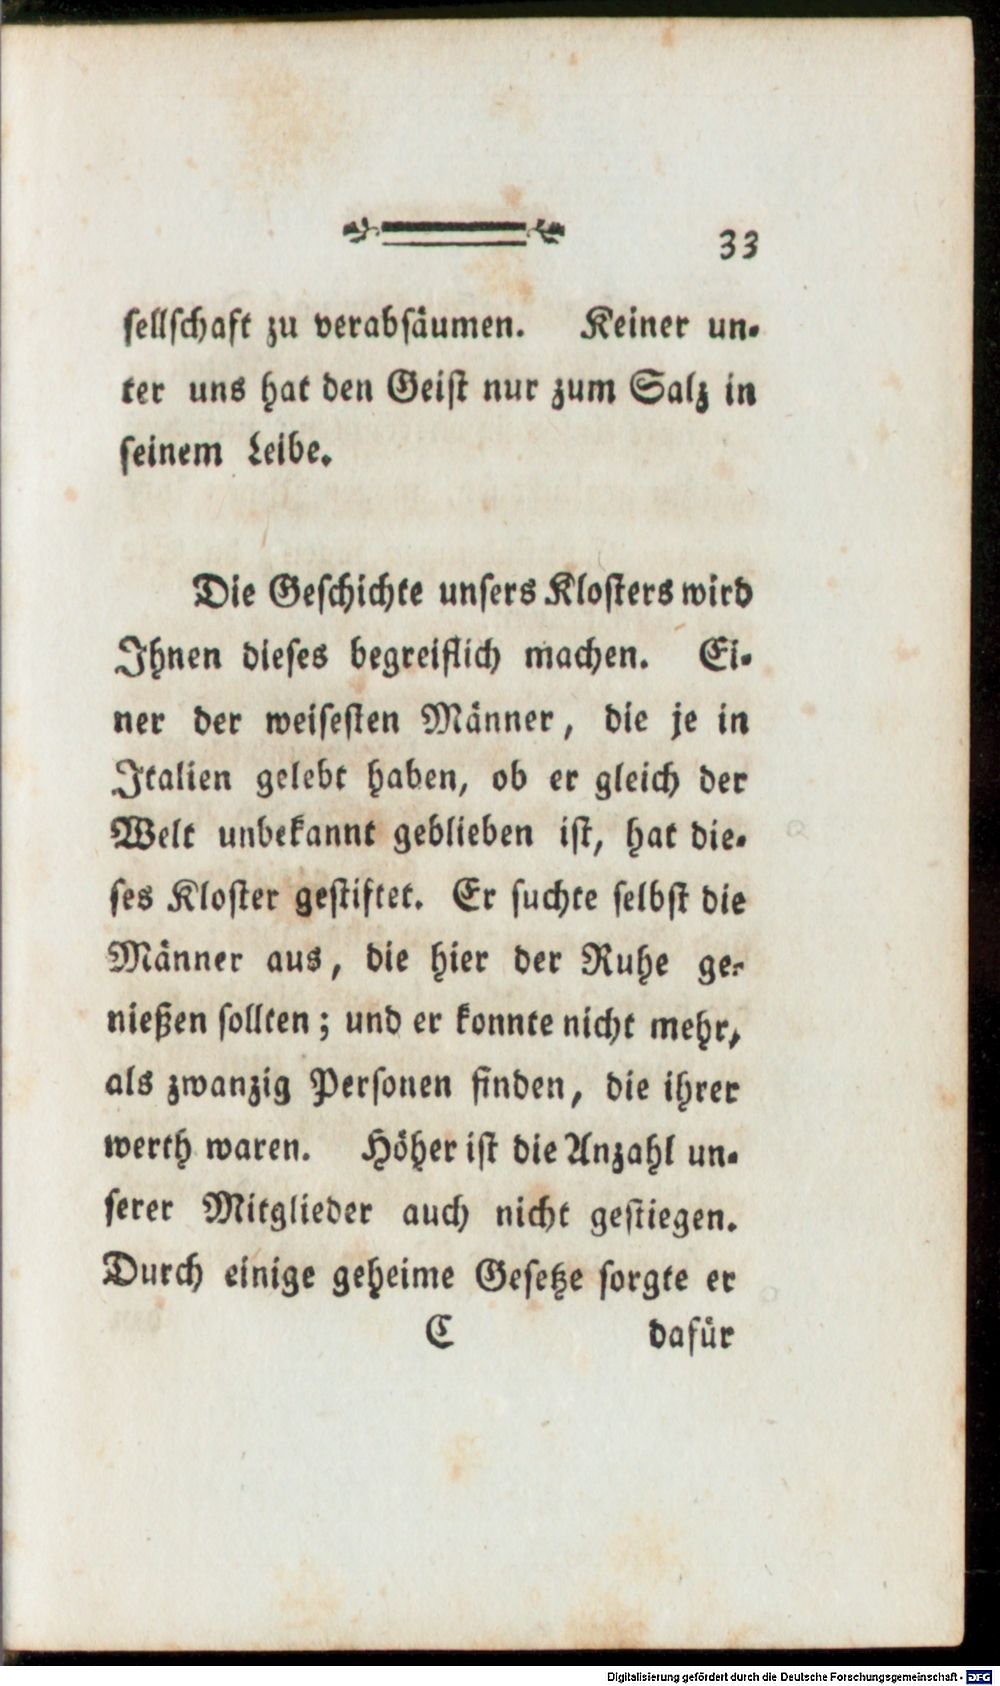 33
sellschaft zu verabsäumen. Keiner un-
ter uns hat den Geist nur zum Salz in
seinem Leibe.
Die Geschichte unsers Klosters wird
Ihnen dieses begreiflich machen. Ei-
ner der weisesten Männer, die je in
Italien gelebt haben, ob er gleich der
Welt unbekannt geblieben ist, hat die-
ses Kloster gestiftet. Er suchte selbst die
Männer aus, die hier der Ruhe ge-
nießen sollten; und er konnte nicht mehr,
als zwanzig Personen finden, die ihrer
werth waren. Höher ist die Anzahl un-
serer Mitglieder auch nicht gestiegen.
Durch einige geheime Gesetze sorgte er
C dafür
Digitalisierung gefördert durch die Deutsche Forschungsgemeinschaft - DFG